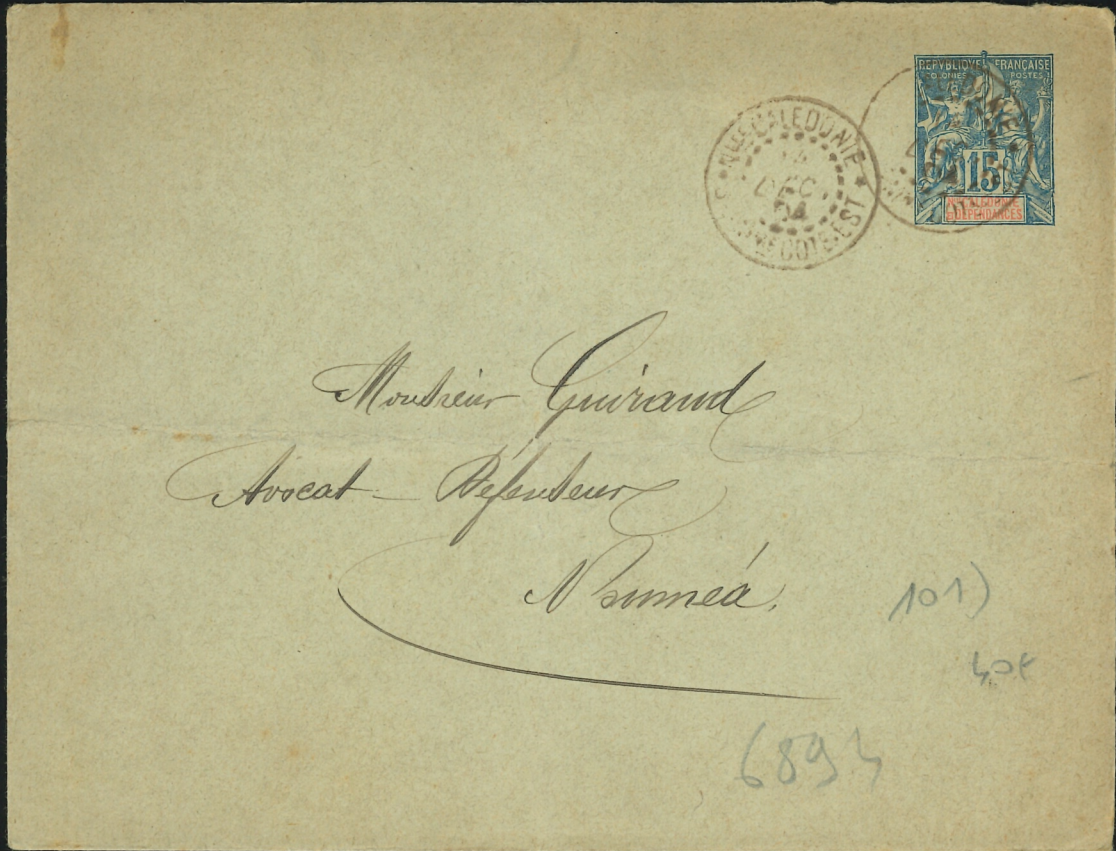 REPVBLIQVE FRANÇAISE
COLONIES POSTES
15
Nlle CALEDONIE
ET DÉPENDANCES
Nlle CALEDONIE
DEC
COTE-EST
Monsieur Guiraud
Avocat - Défenseur
Nouméa.
101)
40€
6894